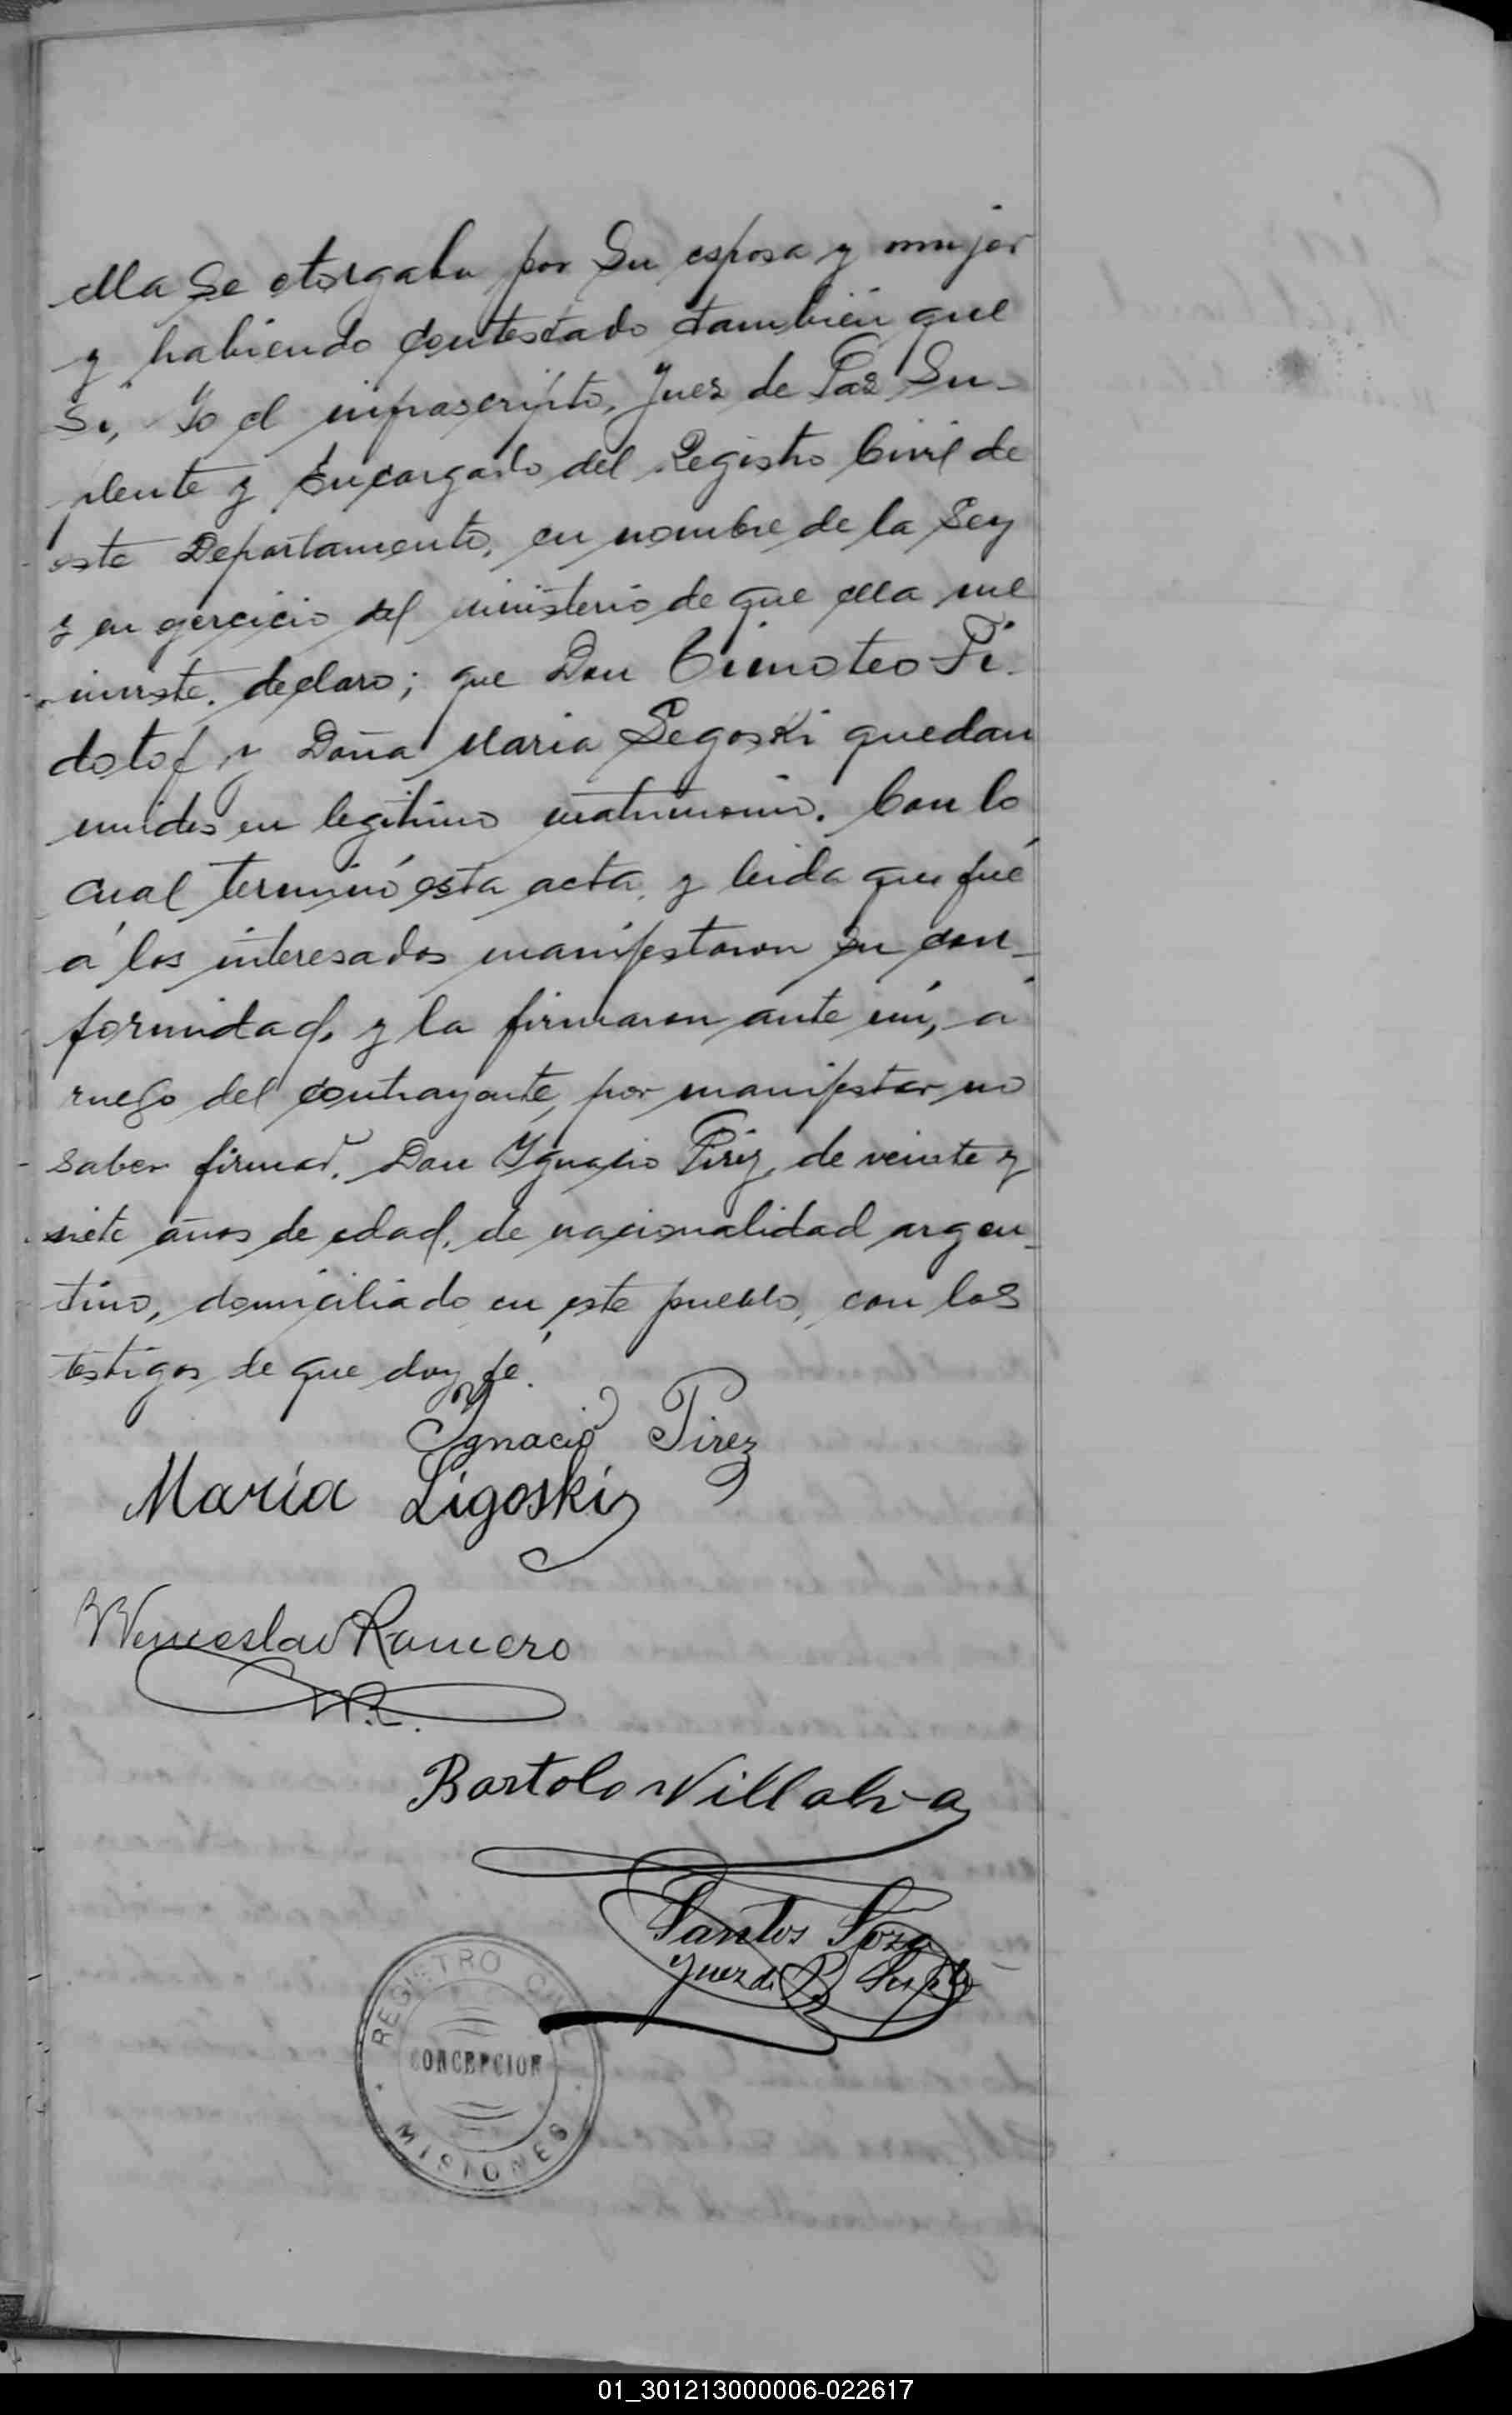 ella se otorgaba por Su esposa y mujer
y habiendo contestado también que
Si, Yo el infrascripto, Juez de Paz Su-
plente y Encargado del Registro Civil de
este Departamento, en nombre de la Ley
y en ejercicio del ministerio de que ella me
inviste, declaro; que Don Timoteo Fi-
dotof y Doña Maria Legoski quedan
unidos en legitimo matrimonio. Con lo
cual terminó esta acta, y leida que fué
á los interesados manifestaron su con-
formidad, y la firmaron ante mí, á
ruego del contrayente, por manifestar no
saber firmar, Don Ygnacio Pirez, de veinte y
siete años de edad, de nacionalidad argen-
tino, domiciliado en este pueblo, con los
testigos de que doy fé.
Ygnacio Pirez
María Ligoski
Wenceslao Romero
Bartolo Villalva
Santos Soza
Juez de P. Supte
REGISTRO CIVIL
CONCEPCION
MISIONES
01_301213000006-022617